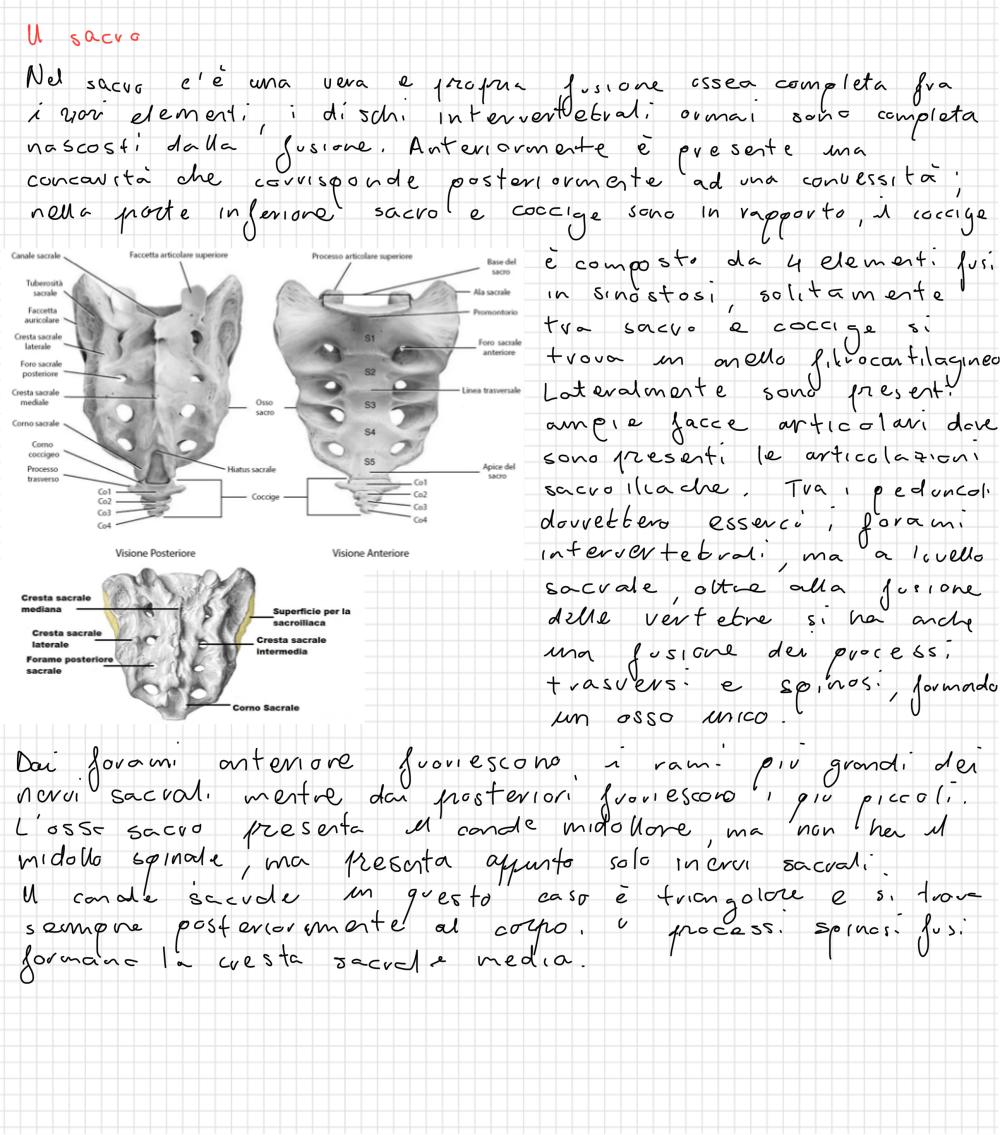 Il sacro
Nel sacro c'è una vera e propria fusione ossea completa fra
i vari elementi, i dischi intervertebrali ormai sono completa
nascosti dalla fusione. Anteriormente è presente una
concavità che corrisponde posteriormente ad una convessità;
nella parte inferiore sacro e coccige sono in rapporto, il coccige
è composto da 4 elementi fusi
in sinostosi, solitamente
tra sacro e coccige si
trova un anello fibrocartilagineo
Lateralmente sono presenti
ampie facce articolari dove
sono presenti le articolazioni
sacroiliache. Tra i peduncoli
dovrebbero esserci i forami
intervertebrali, ma a livello
sacrale, oltre alla fusione
delle vertebre si ha anche
una fusione dei processi
trasversi e spinosi, formando
un osso unico.
Canale sacrale
Faccetta articolare superiore
Tuberosità
sacrale
Faccetta
auricolare
Cresta sacrale
laterale
Foro sacrale
posteriore
Cresta sacrale
mediale
Corno sacrale
Corno
coccigeo
Processo
trasverso
Co1
Co2
Co3
Co4
Hiatus sacrale
Osso
sacro
Coccige
Processo articolare superiore
Base del
sacro
Ala sacrale
Promontorio
Foro sacrale
anteriore
Linea trasversale
Apice del
sacro
S1
S2
S3
S4
S5
Co1
Co2
Co3
Co4
Visione Posteriore
Visione Anteriore
Cresta sacrale
mediana
Cresta sacrale
laterale
Forame posteriore
sacrale
Superficie per la
sacroiliaca
Cresta sacrale
Intermedia
Corno Sacrale
Dai forami anteriore fuoriescono i rami più grandi dei
nervi sacrali mentre dai posteriori fuoriescono i più piccoli.
L'osso sacro presenta il canale midollare, ma non ha il
midollo spinale, ma presenta appunto solo i nervi sacrali.
Il canale sacrale in questo caso è triangolare e si trova
sempre posteriormente al corpo. i processi spinosi fusi
formano la cresta sacrale media.